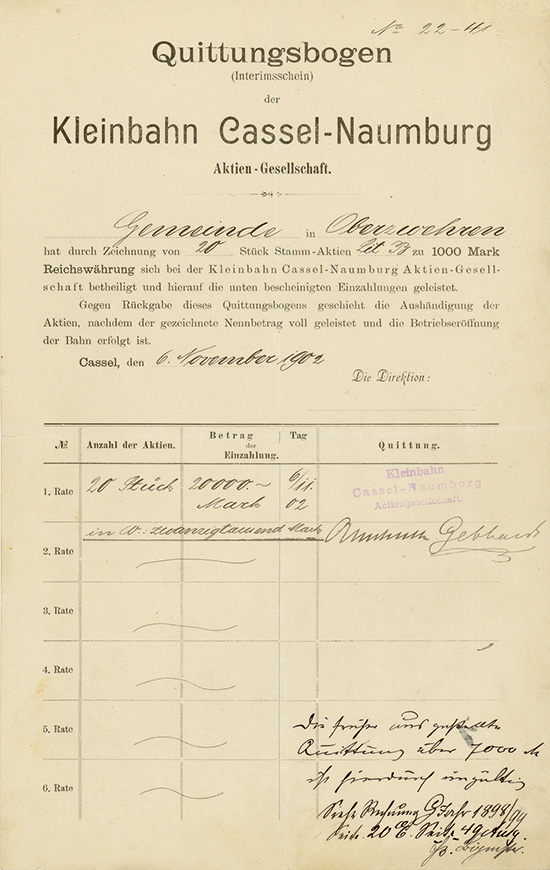 No 22-41
Quittungsbogen
(Interimsschein)
der
Kleinbahn Cassel-Naumburg
Aktien-Gesellschaft.
Gemeinde in Oberzwehren
hat durch Zeichnung von 20 Stück Stamm-Aktien Lit B zu 1000 Mark
Reichswährung sich bei der Kleinbahn Cassel-Naumburg Aktien-Gesell-
schaft betheiligt und hierauf die unten bescheinigten Einzahlungen geleistet.
Gegen Rückgabe dieses Quittungsbogens geschieht die Aushändigung der
Aktien, nachdem der gezeichnete Nennbetrag voll geleistet und die Betriebseröffnung
der Bahn erfolgt ist.
Cassel, den 6. November 1902
Die Direktion:
№ Anzahl der Aktien. Betrag der Einzahlung. Tag Quittung.
1. Rate 20 Stück 20000.- Mark 6/11. 02
Kleinbahn
Cassel-Naumburg
Actiengesellschaft.
in W. zwanzigtausend Mark
Gebhardt
2. Rate
3. Rate
4. Rate
5. Rate
6. Rate
Die früher ausgestellte
Quittung über 7000 M
ist hierdurch ungültig
Siehe Rechnung Jahr 1898/99
Seite 20